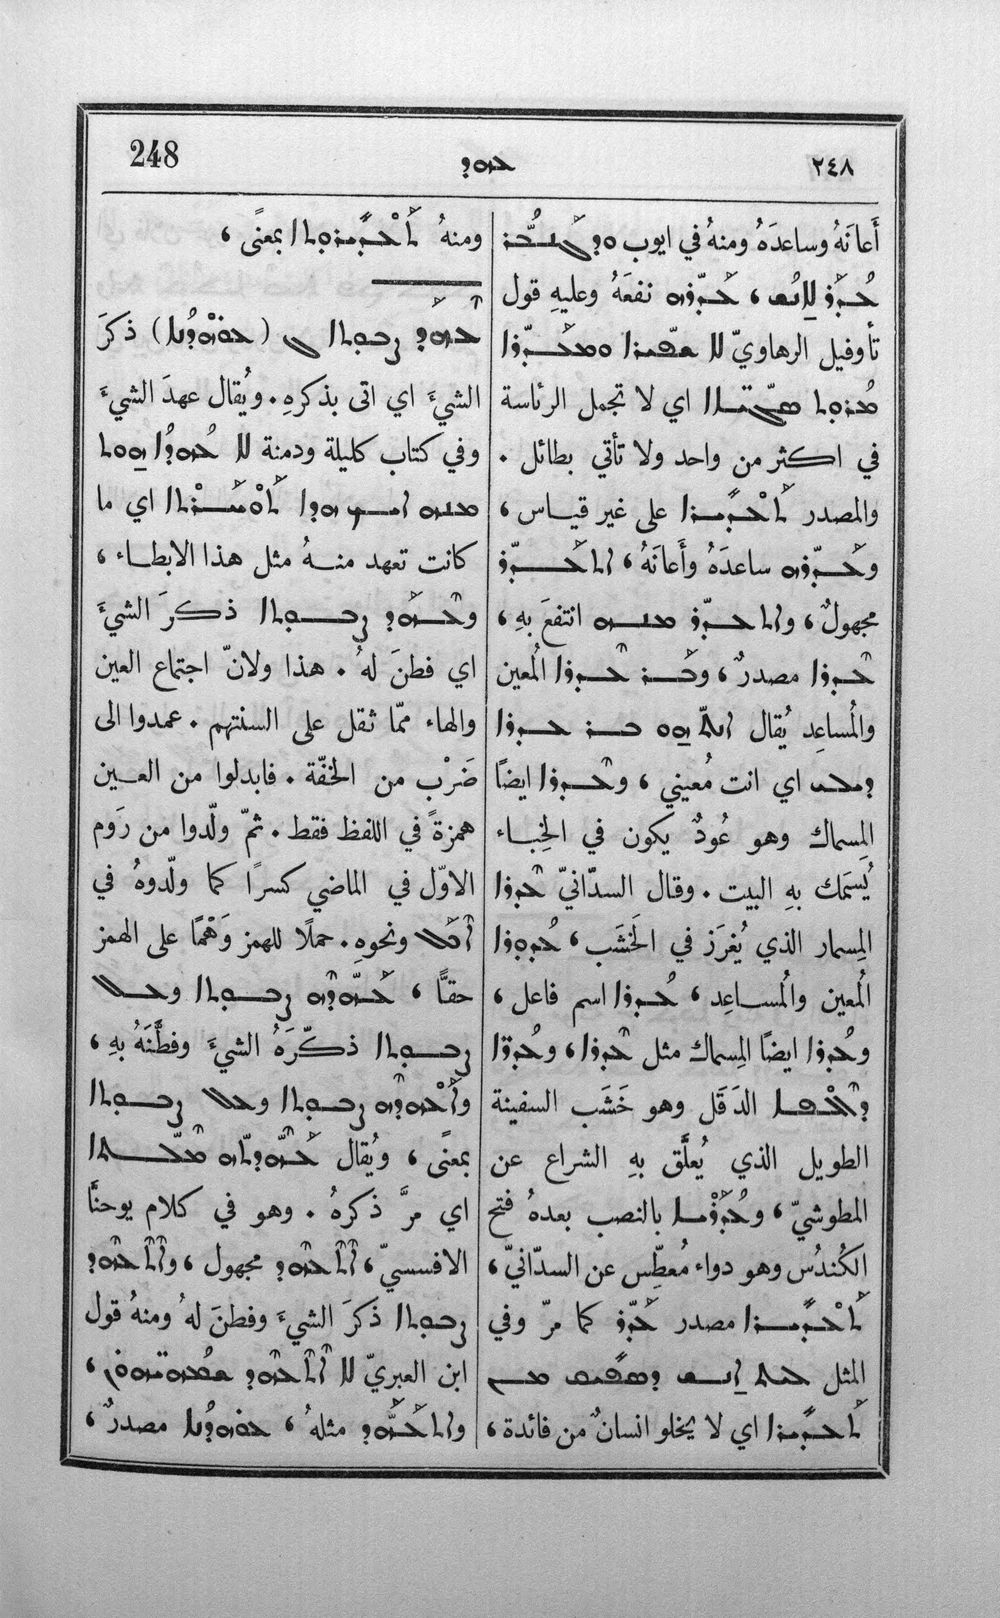 ٢٤٨ ܥܗܕ 248
أَعانَهُ وساعدَهُ ومنهُ في ايوب
ܥܕܪ ܠܐܢܫ ، ܥܕܪܗ نفعَهُ وعليهِ قول
تأوفيل الرهاويّ ܠܐ ܫܦܝܪܐ ܘܡܥܕܪܐ
ܡܪܘܬ ܣܓܝ̈ܐܐ اي لا تجمل الرئاسة
في اكثر من واحد ولا تأتي بطائل .
والمصدر ܬܥܕܝܪܐ على غير قياس ،
وܥܕܪܗ ساعدَهُ وأَعانَهُ ، ܐܬܥܕܪ
مجهولٌ ، وܐܬܥܕܪ ܡܢܗ انتفعَ بهِ ،
ܥܕܪܐ مصدرٌ ، وܒܪ ܥܕܪܐ المُعين
والمُساعِد يُقال ܐܢܬ ܗܘ ܒܪ ܥܕܪܐ
ܕܝܠܝ اي انت مُعيني ، وܥܕܪܐ ايضًا
المِسماك وهو عُودٌ يكون في الخِباء
يُسمَك بهِ البيت . وقال السدّانيّ ܥܕܪܐ
المِسمار الذي يُغرَز في الخَشَب ، ܥܕܘܪܐ
المُعين والمُساعِد ، ܥܕܪܐ اسم فاعل ،
وܥܕܪܐ ايضًا المِسماك مثل ܥܕܪܐ ، وܥܕܪ̈ܐ
ܕܐܠܦܐ الدَقَل وهو خَشَب السفينة
الطويل الذي يُعلَّق بهِ الشراع عن
المطوشيّ ، بالنصب بعدهُ فتح
الكُندُس وهو دواء مُعطِّس عن السدّانيّ ،
ܬܥܕܝܪܐ مصدر ܥܕܪ كما مرّ وفي
المثل
ܬܥܕܝܪܐ اي لا يخلو انسانٌ من فائدة ،
ومنهُ ܬܥܕܝܪܘܬܐ بمعنًى ،
ܥܗܕ ܨܒܘܬܐ (ܥܘܗܕܢܐ) ذكرَ
الشيءَ اي اتى بذكرهِ . ويُقال عهدَ الشيءَ
وفي كتاب كليلة ودمنة ܠܐ ܥܗܕܐ ܗܘܬ
ܡܢܗ ܐܝܟ ܗܕܐ ܬܘܚܪܬܐ اي ما
كانت تعهد منهُ مثل هذا الابطاء ،
وܥܗܕ ܨܒܘܬܐ ذكرَ الشيءَ
اي فطنَ لهُ . هذا ولانّ اجتماع العين
والهاء ممّا ثقل على السنتهم . عمدوا الى
ضَرْب من الخفّة . فابدلوا من العين
همزةً في اللفظ فقط . ثمّ ولّدوا من رَوم
الاوّل في الماضي كسرًا كما ولّدوهُ في
ܐܟܠ ونحوهِ . حملًا للهمز وَهْمًا على الهمز
حقًّا ، ܥܗܕܗ ܨܒܘܬܐ وܥܠ
ܨܒܘܬܐ ذكّرَهُ الشيءَ وفطَّنَهُ بهِ ،
وܐܥܗܕܗ ܨܒܘܬܐ وܥܠ ܨܒܘܬܐ
بمعنًى ، ويُقال
اي مرَّ ذكرهُ . وهو في كلام يوحنَّا
الافسسيّ ، ܐܬܥܗܕ مجهول ، وܐܬܥܗܕ
ܨܒܘܬܐ ذكرَ الشيءَ وفطنَ لهُ ومنهُ قول
ابن العبريّ ܠܐ ܐܬܥܗܕ
وܐܬܥܗܕ مثلهُ ، ܥܘܗܕܢܐ مصدرٌ ،